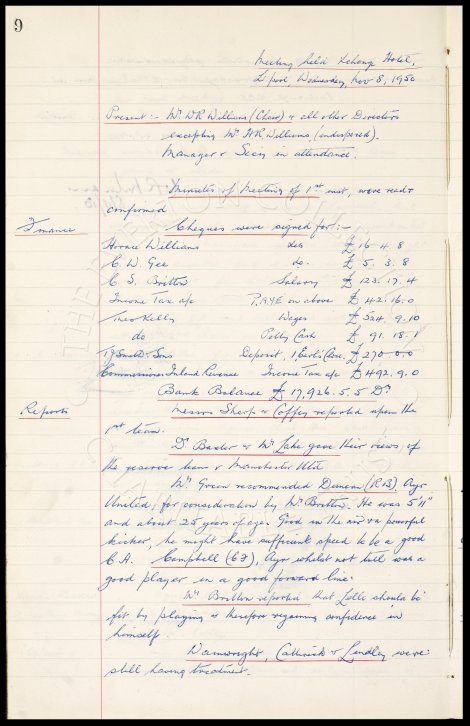 9
Meeting held Exchange Hotel,
L'pool Wednesday, Nov 8, 1950
Present :- Mr. W R Williams (Chair) & all other Directors
excepting Mr. H R Williams, (indisposed).
Manager & Secy in attendance.
Minutes of Meeting of 1st inst, were read &
confirmed
Finance Cheques were signed for :-
Horace Williams £ 16 . 4 . 8
C. W. Gee do. £ 5 . 3 . 8
C. S. Britton Salary £ 123 . 17 . 4
Income Tax a/c P.A.Y.E on above £ 42 . 16 . 0
Theo Kelly Wages £ 524 . 9 . 10
do Petty Cash £ 91 . 18 . 1
& Sons Deposit, 1 £ 270 . 0 . 0
Commissioner Inland Revenue Income Tax a/c £ 1492 . 9 . 0
Bank Balance £ 17,926 . 5 . 5 Dr
Reports Messrs Sharp & Coffey reported upon the
1st team.
Dr Baxter & Mr. Lake gave their views of
the reserve team v Manchester Utd
Mr. Green recommended Duncan (R B) Ayr
United, for consideration by Mr. Britton. He was 5' 11"
and about 25 years of age. Good in the air & a powerful
kicker, he might have sufficient speed to be a good
C.H. Campbell (C F), Ayr whilst not tall was a
good player in a good forward line.
Mr. Britton reported that Lello should be
fit by playing & therefore regaining confidence in
himself.
Wainwright, Catterick & Lindley were
still having treatment.